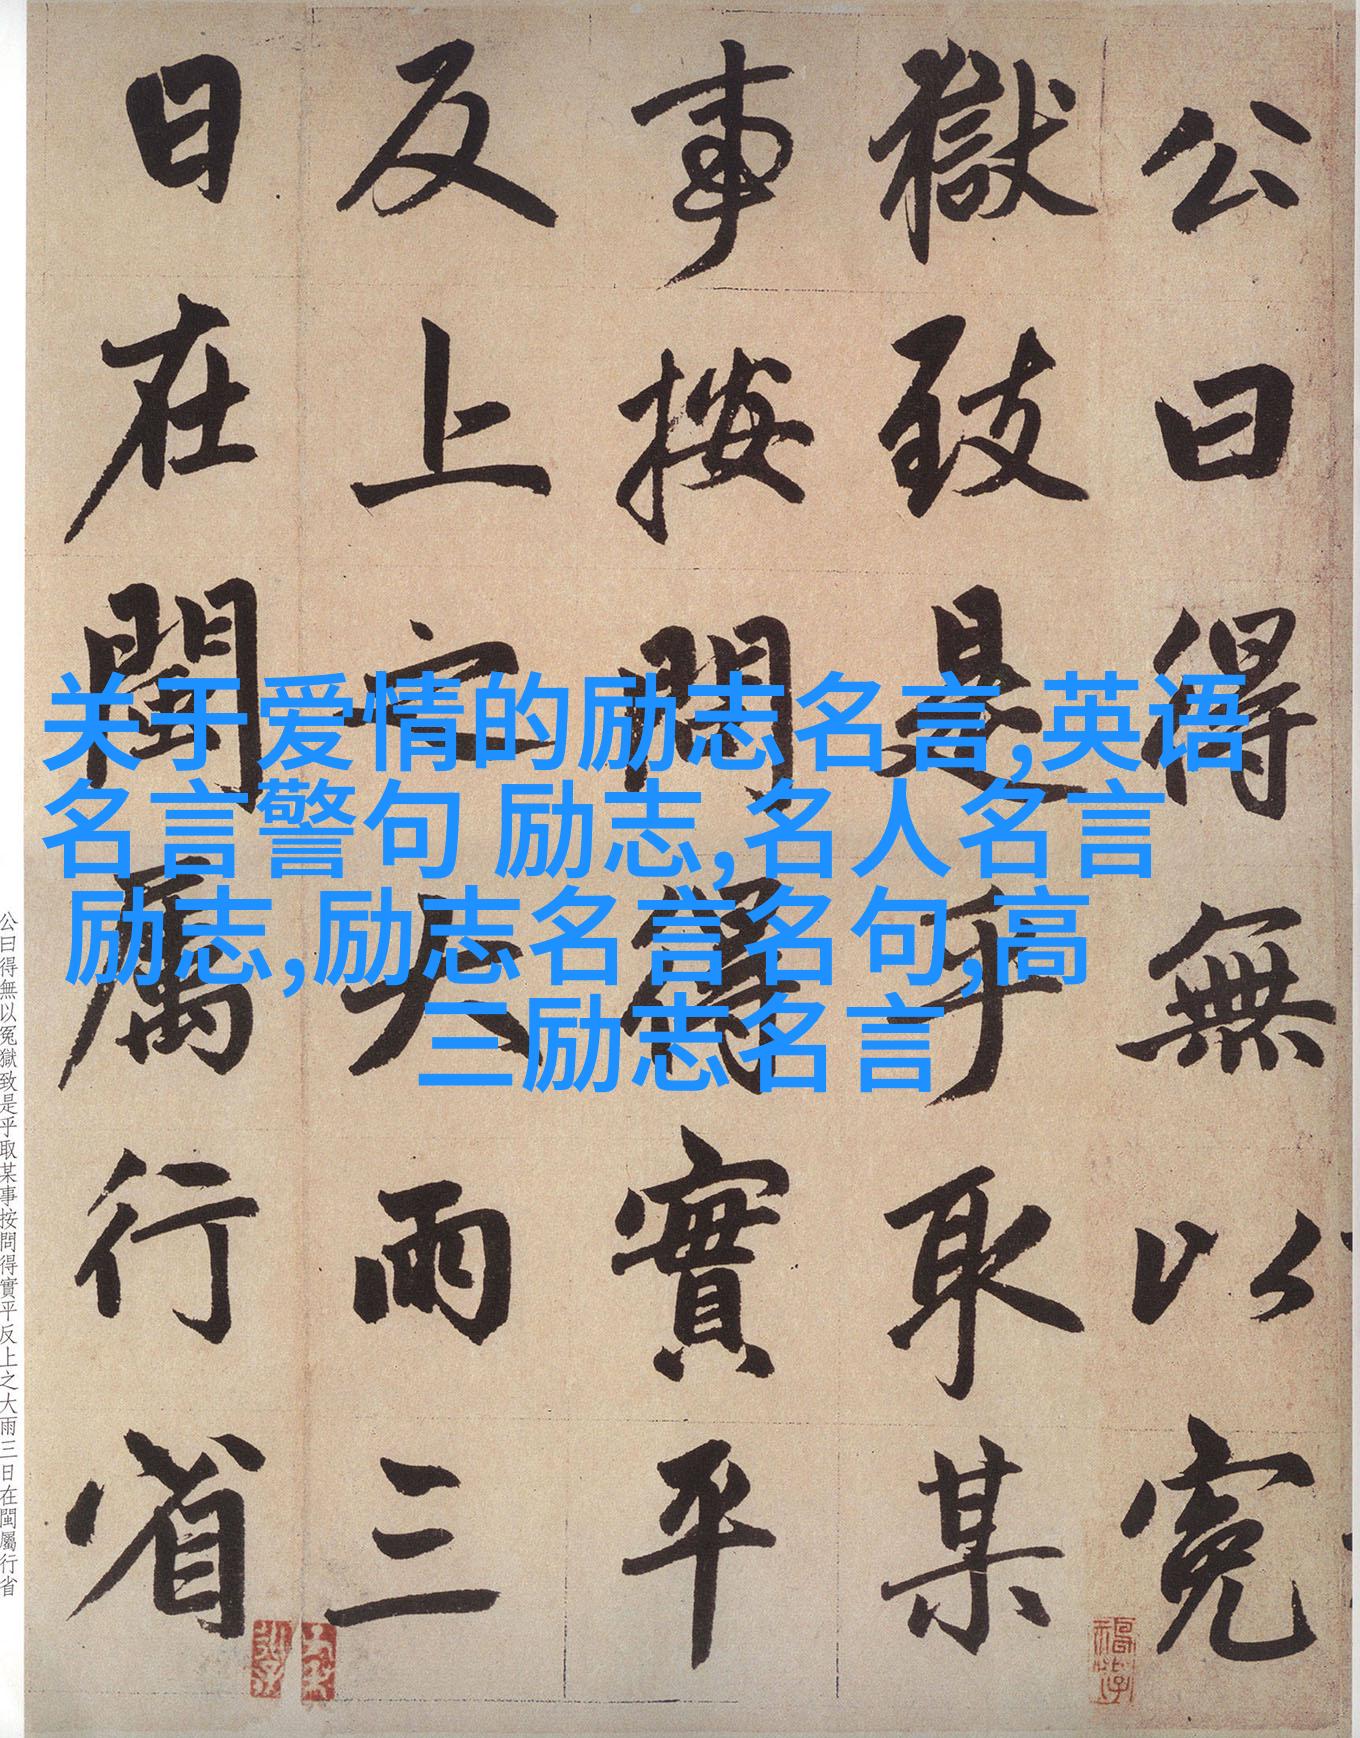 公曰得無以冤
獄致是乎取某
事按問得實平
反上之大雨三
日在閩屬行省
关于爱情的励志名言,英语
名言警句 励志,名人名言
励志,励志名言名句,高
三励志名言
公曰得無以冤獄致是乎取某事按問得實平反上之大雨三日在閩屬行省